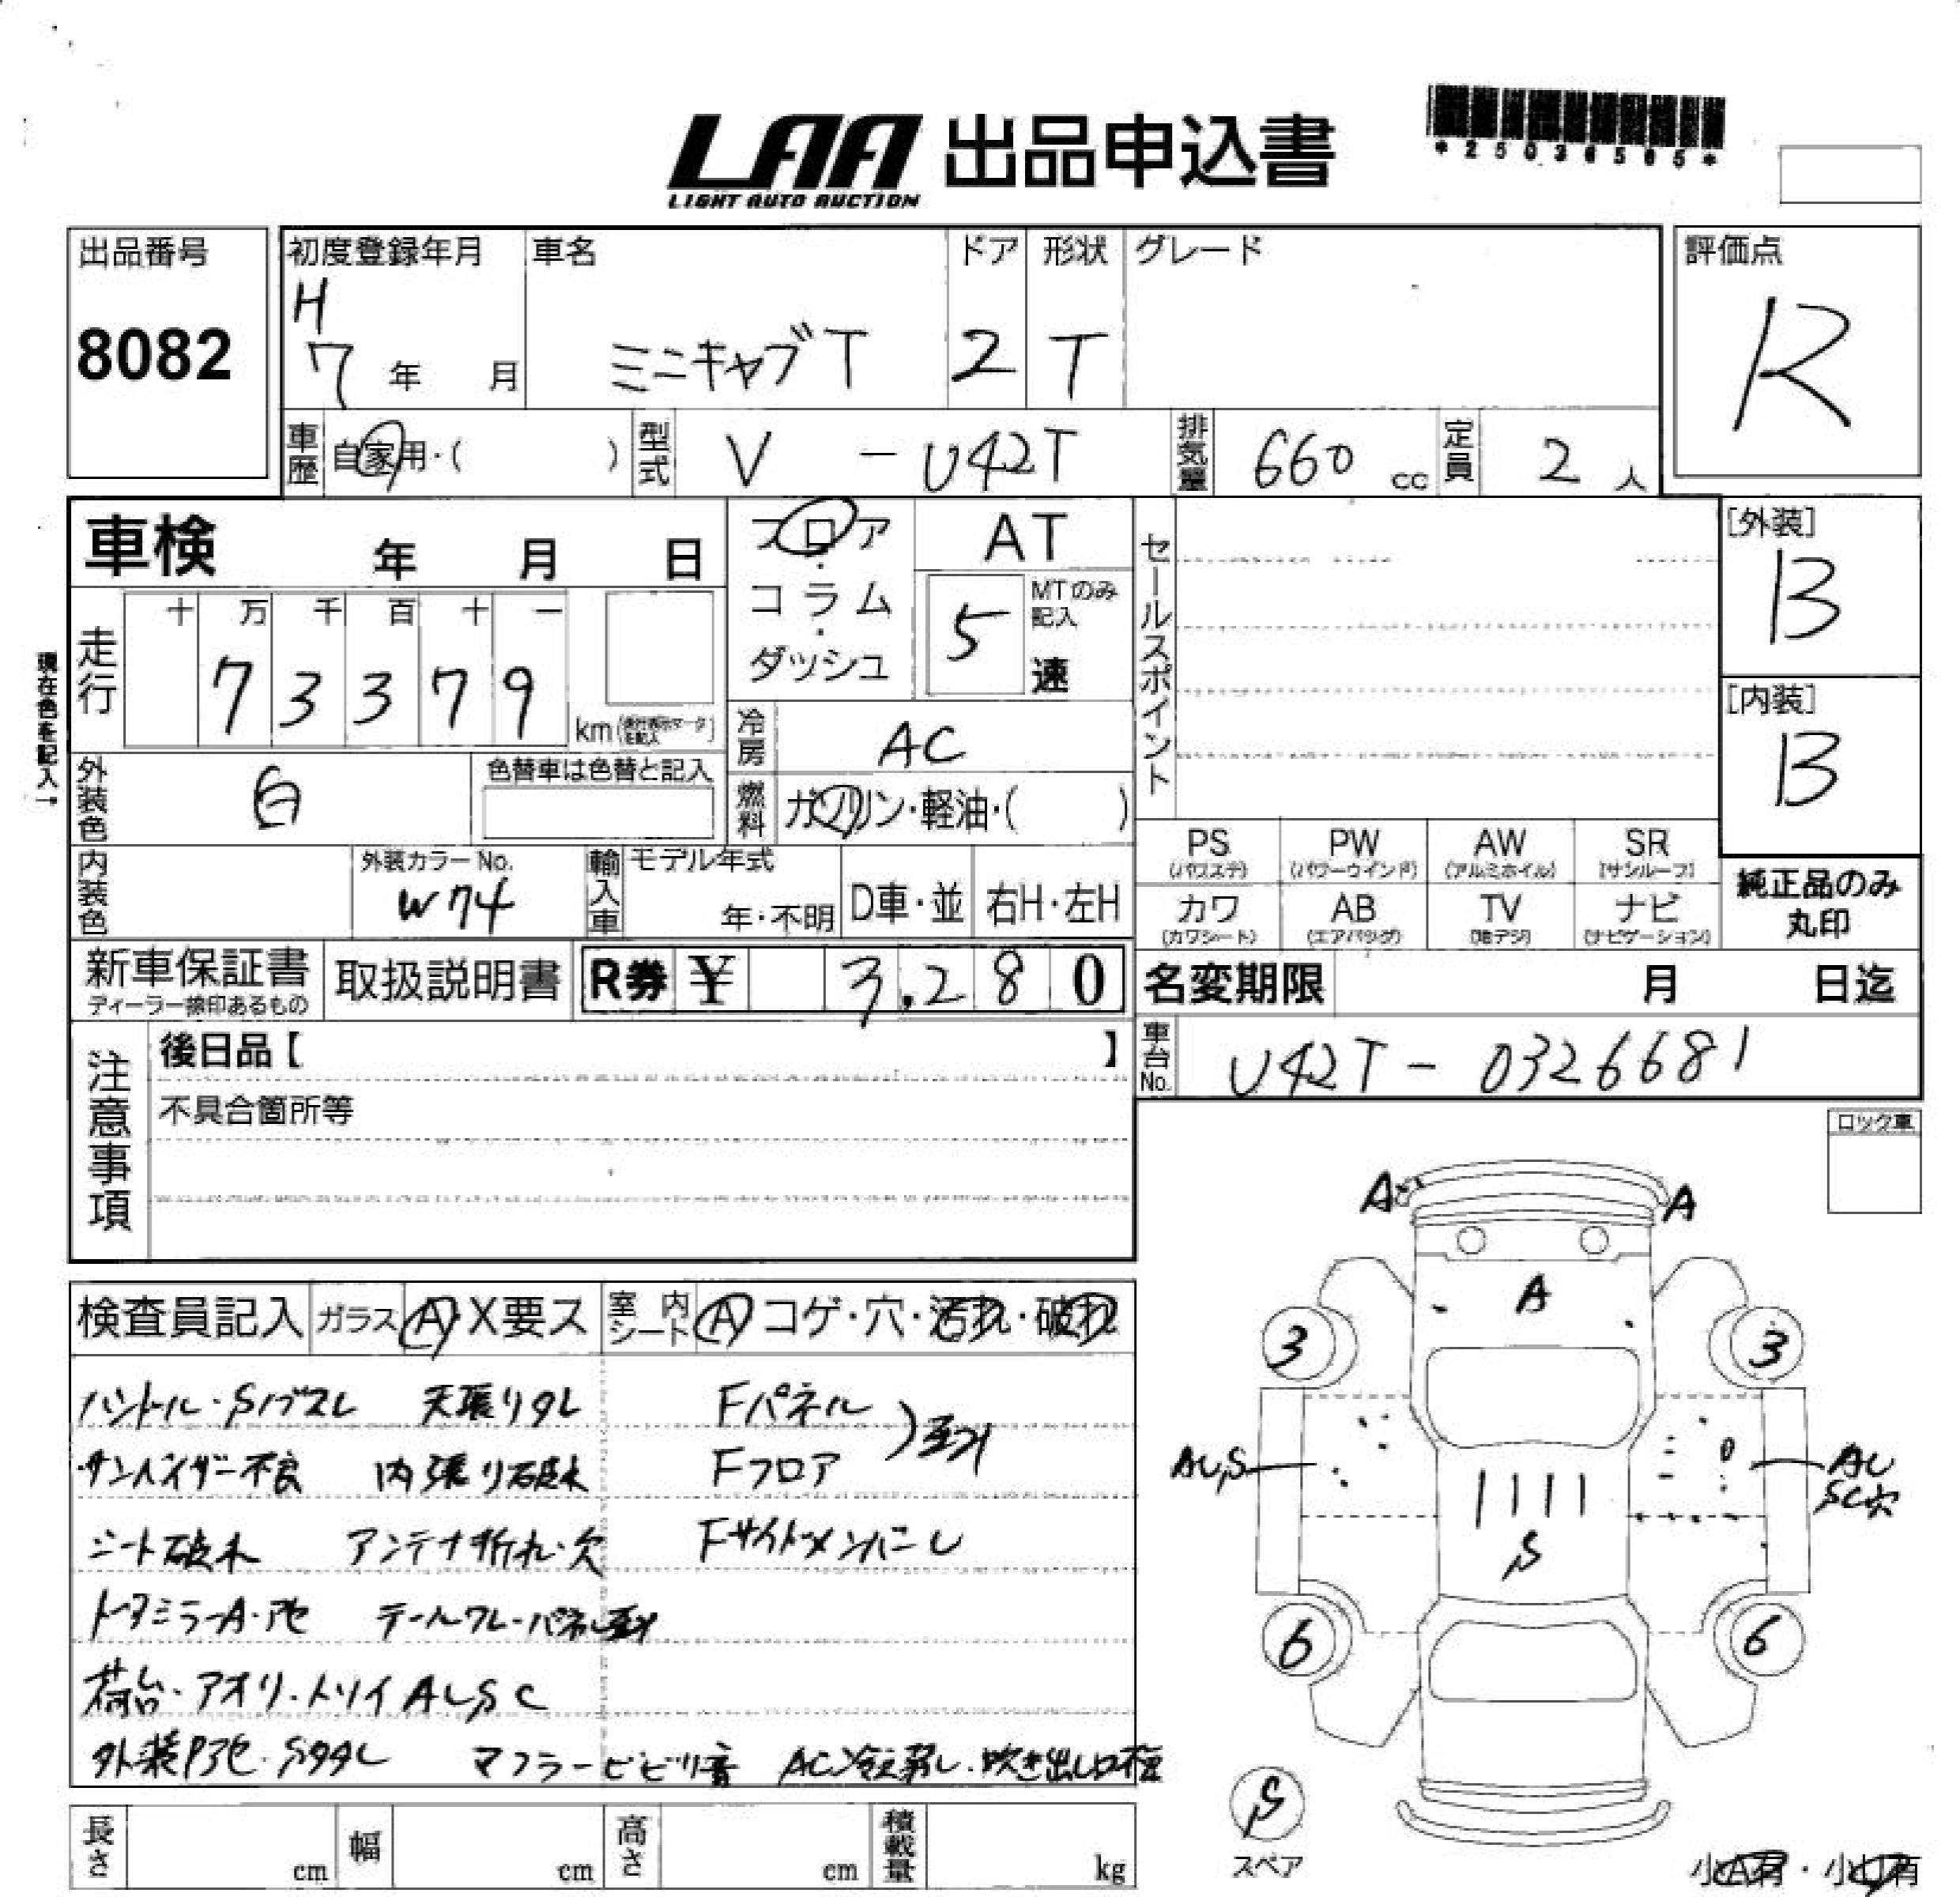 LAA 出品申込書
LIGHT AUTO AUCTION
*25036505*
出品番号
8082
初度登録年月
H
7年 月
車名
ミニキャブT
ドア
2
形状
T
グレード
評価点
R
車歴 自家用・( )
型式 V - U42T
排気量 660 cc
定員 2 人
車検 年 月 日
走行
十 万 千 百 十 一
7 3 3 7 9
km
現在色を記入。
フロア・コラム・ダッシュ
AT
5
MTのみ記入
速
冷房 AC
燃料 ガソリン・軽油・( )
セールスポイント
[外装]
B
[内装]
B
外装色 白
色替車は色替と記入
内装色
外装カラーNo.
W74
輸入車
モデル年式
年・不明
D車・並
右H・左H
PS (パワステ)
PW (パワーウインド)
AW (アルミホイル)
SR (サンルーフ)
カワ (カワシート)
AB (エアバッグ)
TV (地デジ)
ナビ (ナビゲーション)
純正品のみ
丸印
新車保証書
ディーラー捺印あるもの
取扱説明書
R券 ¥ 3,280
名変期限 月 日迄
車台No. U42T - 0326681
注意事項
後日品【 】
不具合箇所等
ロック車
検査員記入
ガラス A・X要ス
室内シート A コゲ・穴・汚れ・破れ
ハンドル・Sノブスレ 天張りタレ Fパネル
サンバイザー不良 内張り破れ Fフロア
シート破れ アンテナ折れ・欠 Fサイドメンバーし
ミラーA・アセ テールワレ・パネル
荷台・アオリ・トリイAUSC
外装アセ・Sタタレ マフラービビリ音 AC冷え弱し・吹き出し口
A
A
A
3
3
AU,S
AU
SC穴
S
6
6
S
スペア
長さ cm
幅 cm
高さ cm
積載量 kg
小A有・小U有